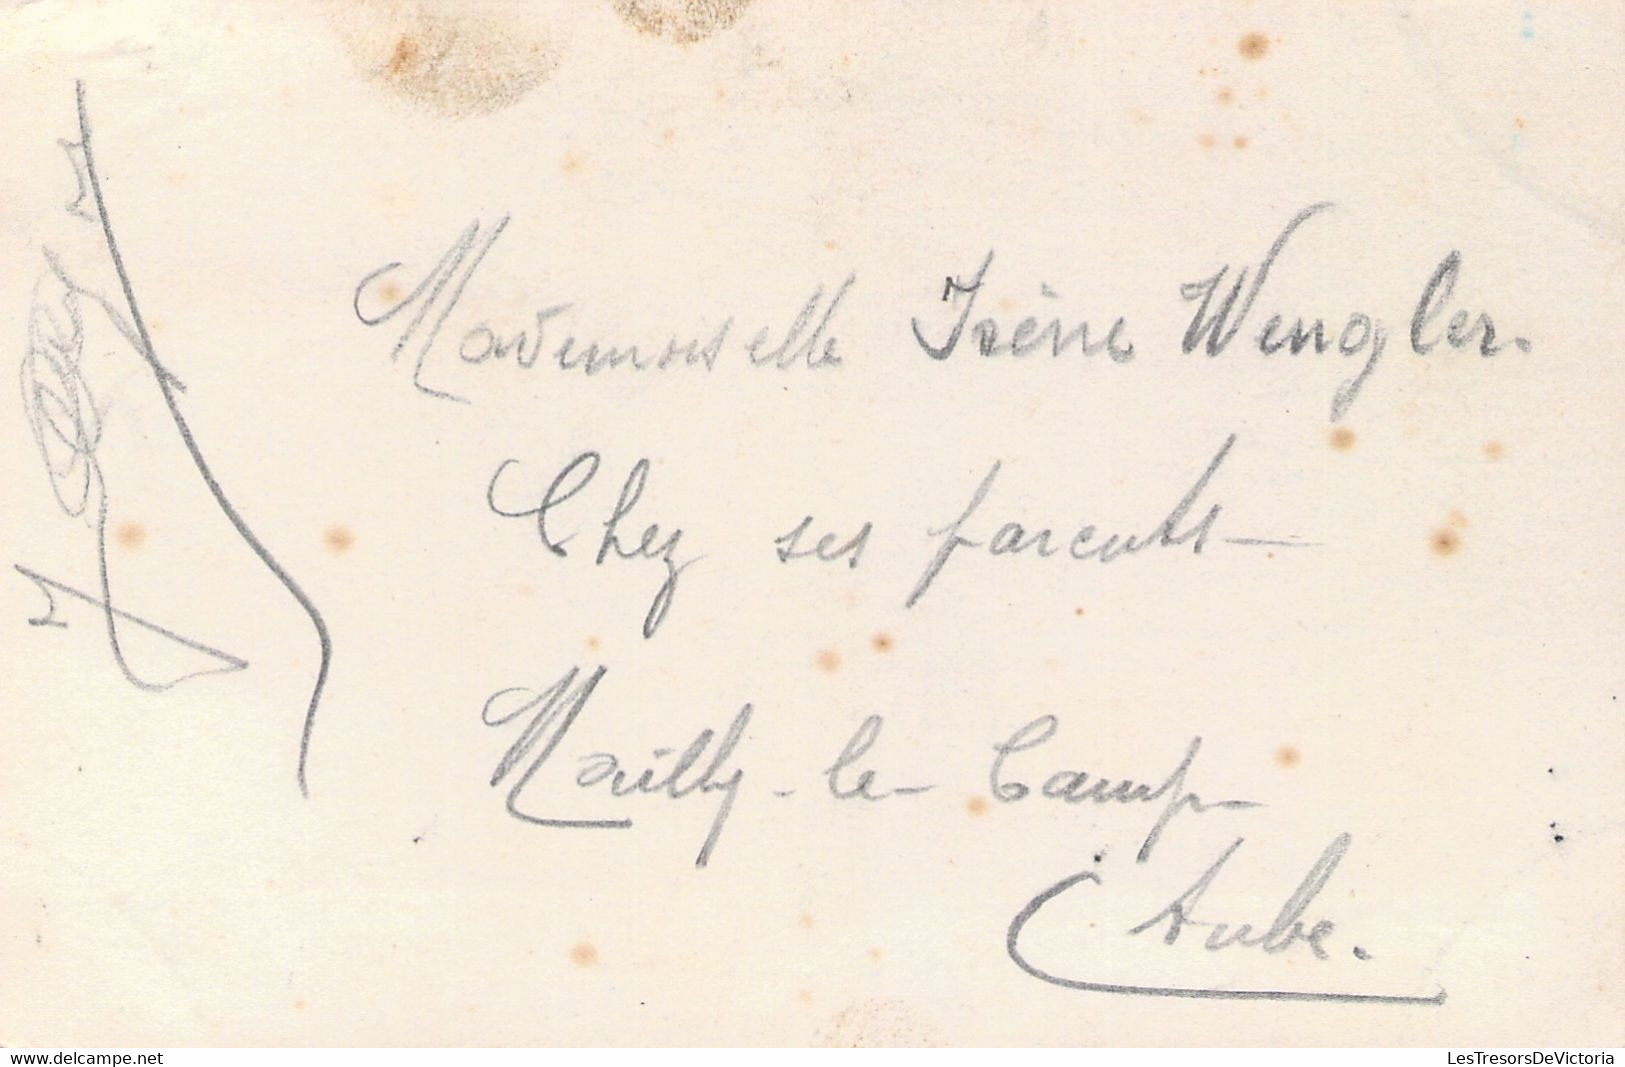 Mademoiselle Irène Wengler.
Chez ses parents
Mailly-le-Camp
Aube.
www.delcampe.net
LesTresorsDeVictoria